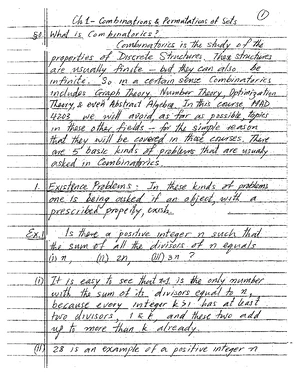 ①
Ch 1 - Combinations & Permutations of Sets
§0. What is Combinatorics?
Combinatorics is the study of the
properties of Discrete Structures. These structures
are usually finite - but they can also be
infinite. So in a certain sense Combinatorics
includes Graph Theory, Number Theory, Optimization
Theory, & even Abstract Algebra. In this course, MAD
4203, we will avoid, as far as possible, topics
in these other fields - for the simple reason
that they will be covered in those courses. There
are 5 basic kinds of problems that are usually
asked in Combinatorics.
1. Existence Problems: In these kinds of problems
one is being asked if an object, with a
prescribed property, exists.
Ex.1 Is there a positive integer n such that
the sum of all the divisors of n equals
(i) n, (ii) 2n, (iii) 3n ?
(i) It is easy to see that is the only number
with the sum of its divisors equal to n,
because every integer k>1 has at least
two divisors, 1 & k, and these two add
up to more than k already.
(ii) 28 is an example of a positive integer n